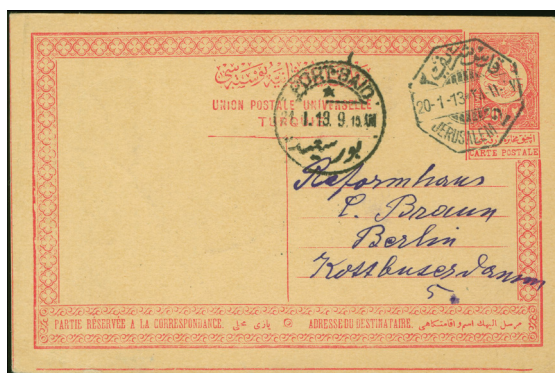 UNION POSTALE UNIVERSELLE
TURQUIE
PORT-SAID
I.13. 9.15 AM
بور سعيد
20-1-13
JERUSALEM
CARTE POSTALE
Reformhaus
C. Braun
Berlin
Kottbuserdamm
5.
PARTIE RÉSERVÉE A LA CORRESPONDANCE. يازى محلى
ADRESSE DU DESTINATAIRE. مرسل اليهك اسم و اقامتكاهى